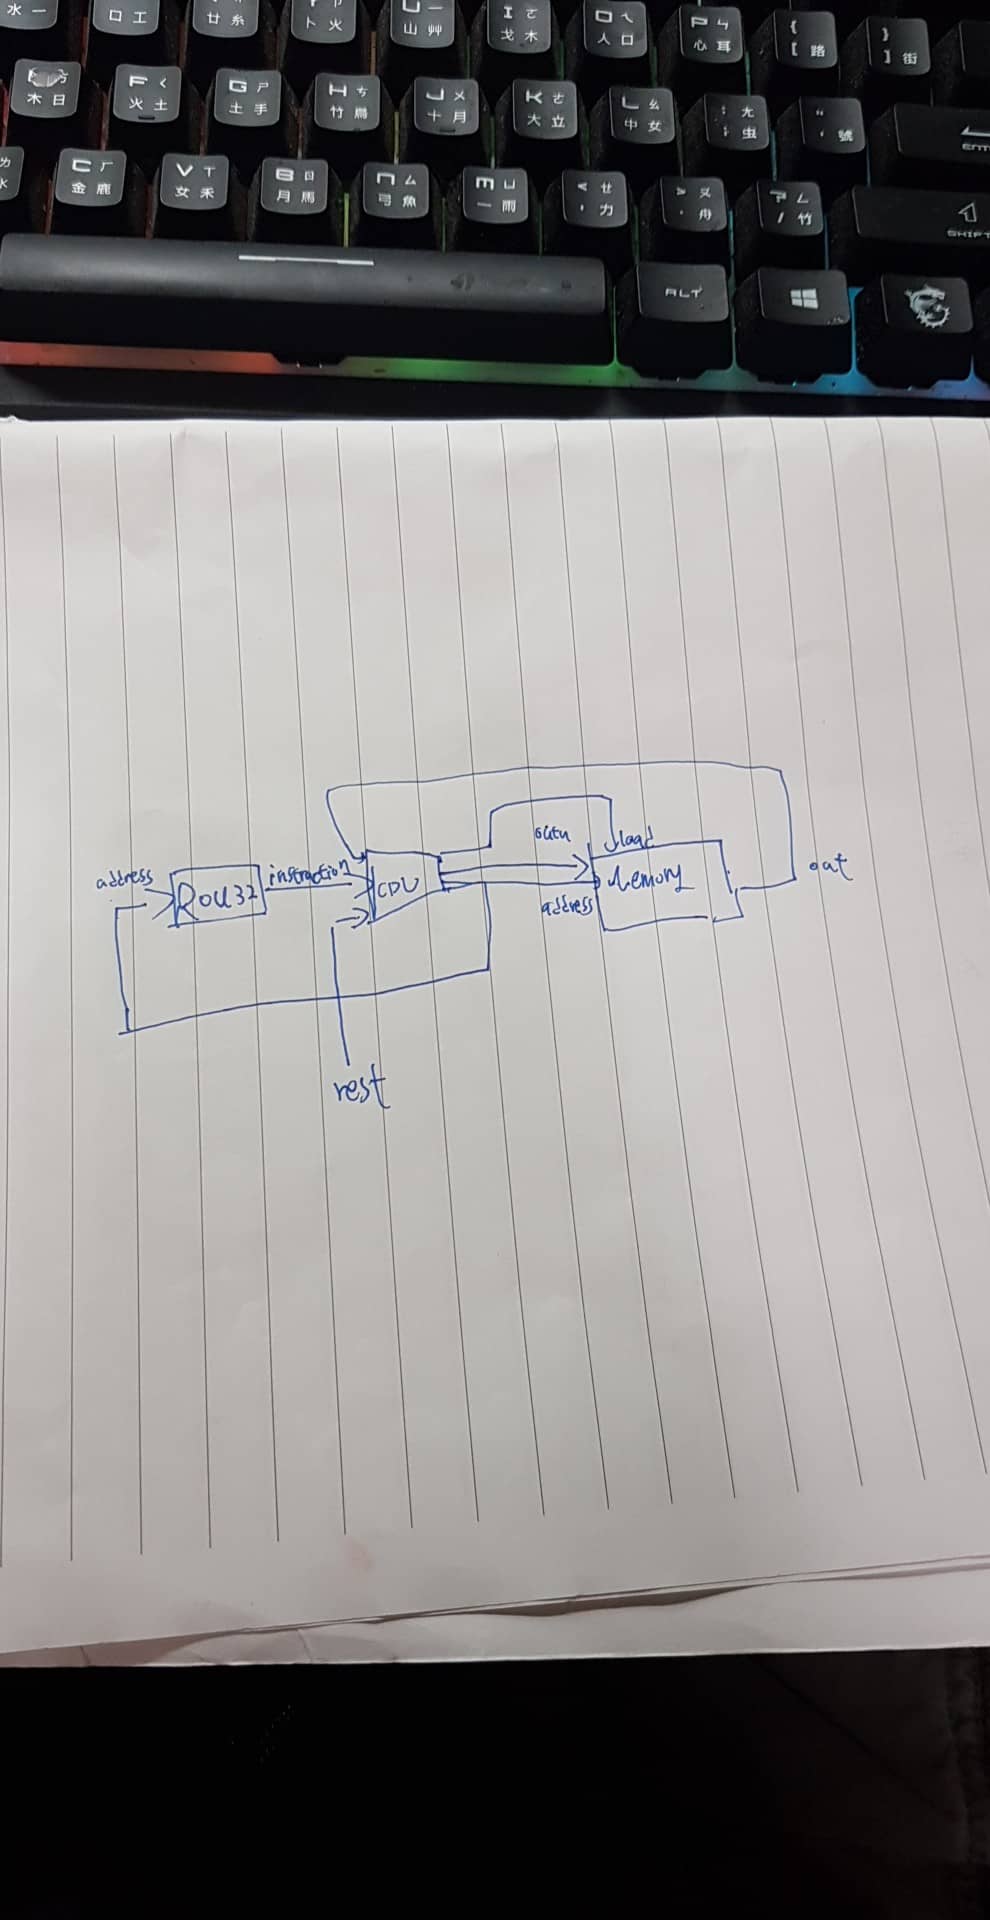 水 一
口 工
廿 糸
卜 火
山 艸
I ㄛ
戈 木
O ㄟ
人 口
P ㄣ
心 耳
{
[ 路
}
] 街
木 日
F ㄑ
火 土
G ㄕ
土 手
H ㄘ
竹 鳥
J ㄨ
十 月
K ㄜ
大 立
L ㄠ
中 女
: ㄤ
; 虫
"
' 號
C ㄏ
金 鹿
V ㄒ
女 禾
B ㄖ
月 馬
N ㄙ
弓 魚
M ㄩ
一 雨
< ㄝ
, 力
> ㄡ
. 舟
? ㄥ
/ 竹
SHIFT
ALT
address
instraction
CPU
load
Memory
address
out
rest